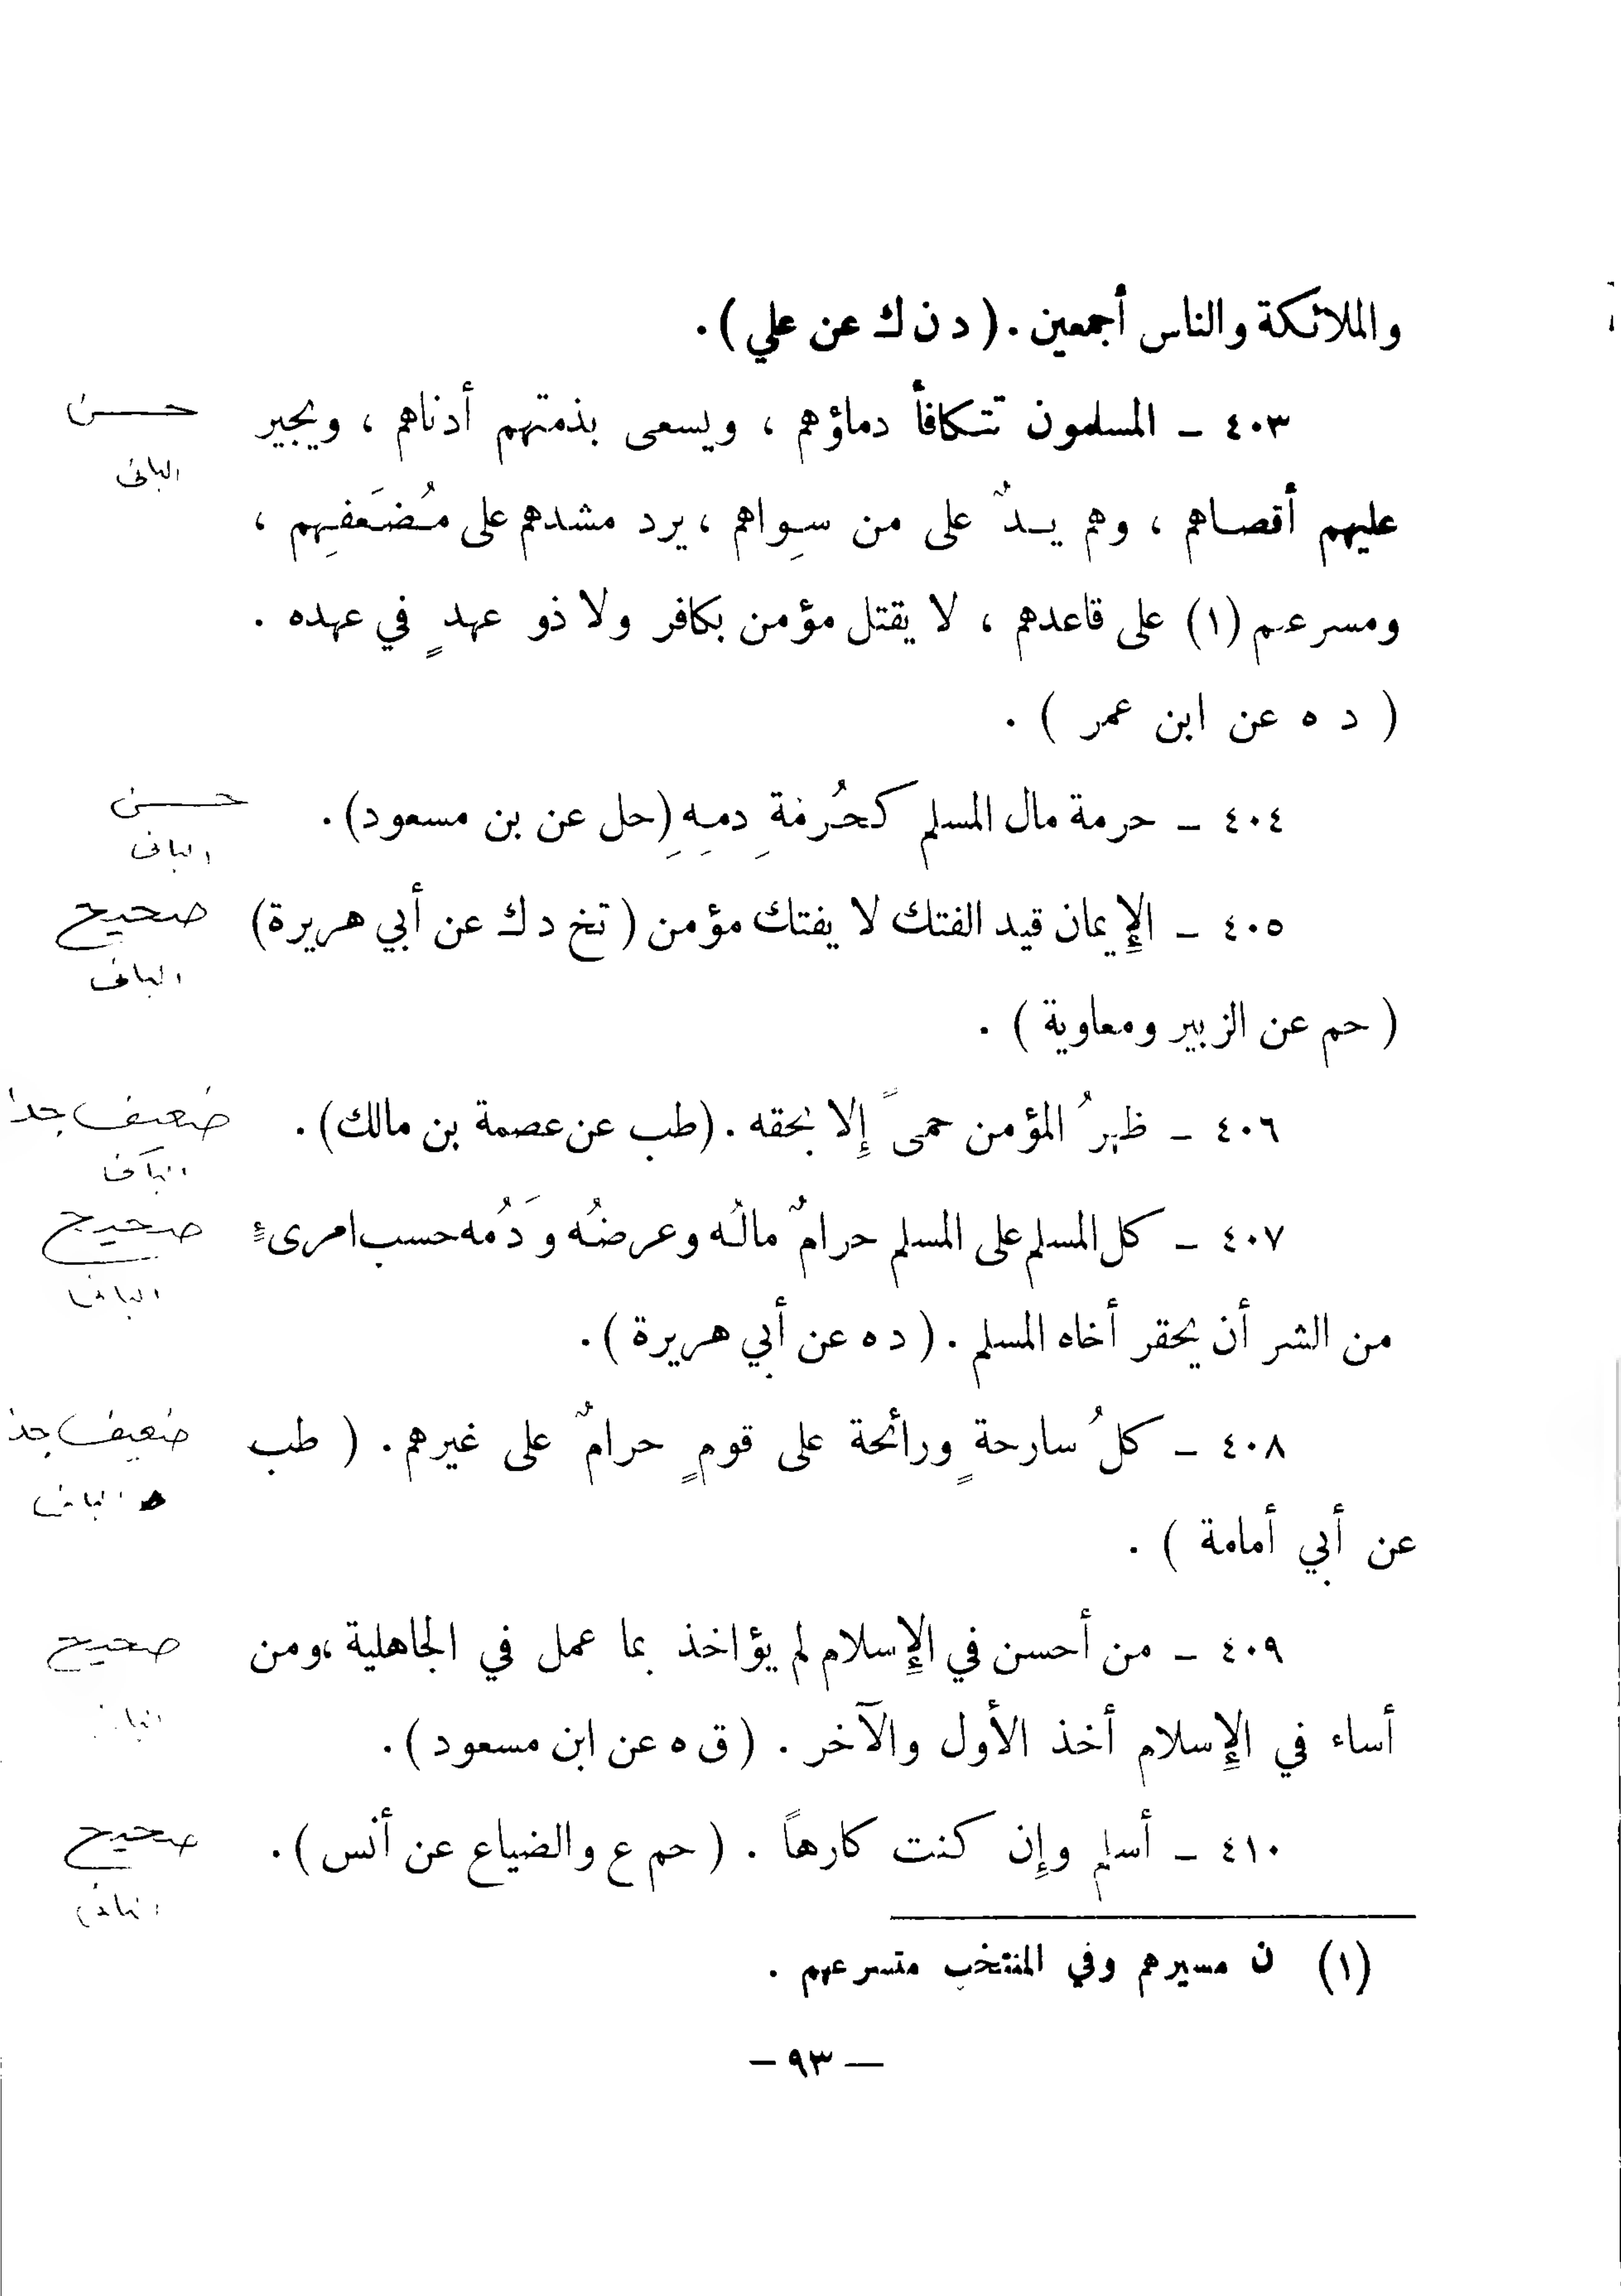 والملائكة والناس أجمعين . ( د ن ك عن علي ) .
٤٠٣ ــ المسلمون تتكافأ دماؤهم ، ويسعى بذمتهم أدناهم ، ويجير
حسن
البانى
عليهم أقصاهم ، وهم يدٌ على من سِواهم ، يرد مشدهم على مُضَعفِهم ،
ومسرعهم (١) على قاعدهم ، لا يقتل مؤمن بكافر ولا ذو عهدٍ في عهده .
( د ه عن ابن عمر ) .
٤٠٤ ــ حرمة مال المسلم كحُرمَةِ دمِهِ (حل عن بن مسعود) .
حسن
البانى
٤٠٥ ــ الإِيمان قيد الفتك لا يفتك مؤمن ( تخ د ك عن أبي هريرة)
صحيح
البانى
( حم عن الزبير ومعاوية ) .
٤٠٦ ــ ظهرُ المؤمن حمىً إِلا بحقه . (طب عن عصمة بن مالك) .
ضعيف جدا
البانى
٤٠٧ ــ كل المسلم على المسلم حرامٌ مالُه وعرضُه ودَمُه حسب امرىءٍ
صحيح
البانى
من الشر أن يحقر أخاه المسلم . ( د ه عن أبي هريرة ) .
٤٠٨ ــ كلُ سارحةٍ ورائحة على قومٍ حرامٌ على غيرهم . ( طب
ضعيف جدا
البانى
عن أبي أمامة ) .
٤٠٩ ــ من أحسن في الإِسلام لم يؤاخذ بما عمل في الجاهلية ،ومن
صحيح
أساء في الإِسلام أخذ الأول والآخر . ( ق ه عن ابن مسعود ) .
٤١٠ ــ أسلم وإِن كنت كارهاً . ( حم ع والضياع عن أنس ) .
صحيح
البانى
(١) ن مسيرهم وفي المنتخب متسرعهم .
— ٩٣ —